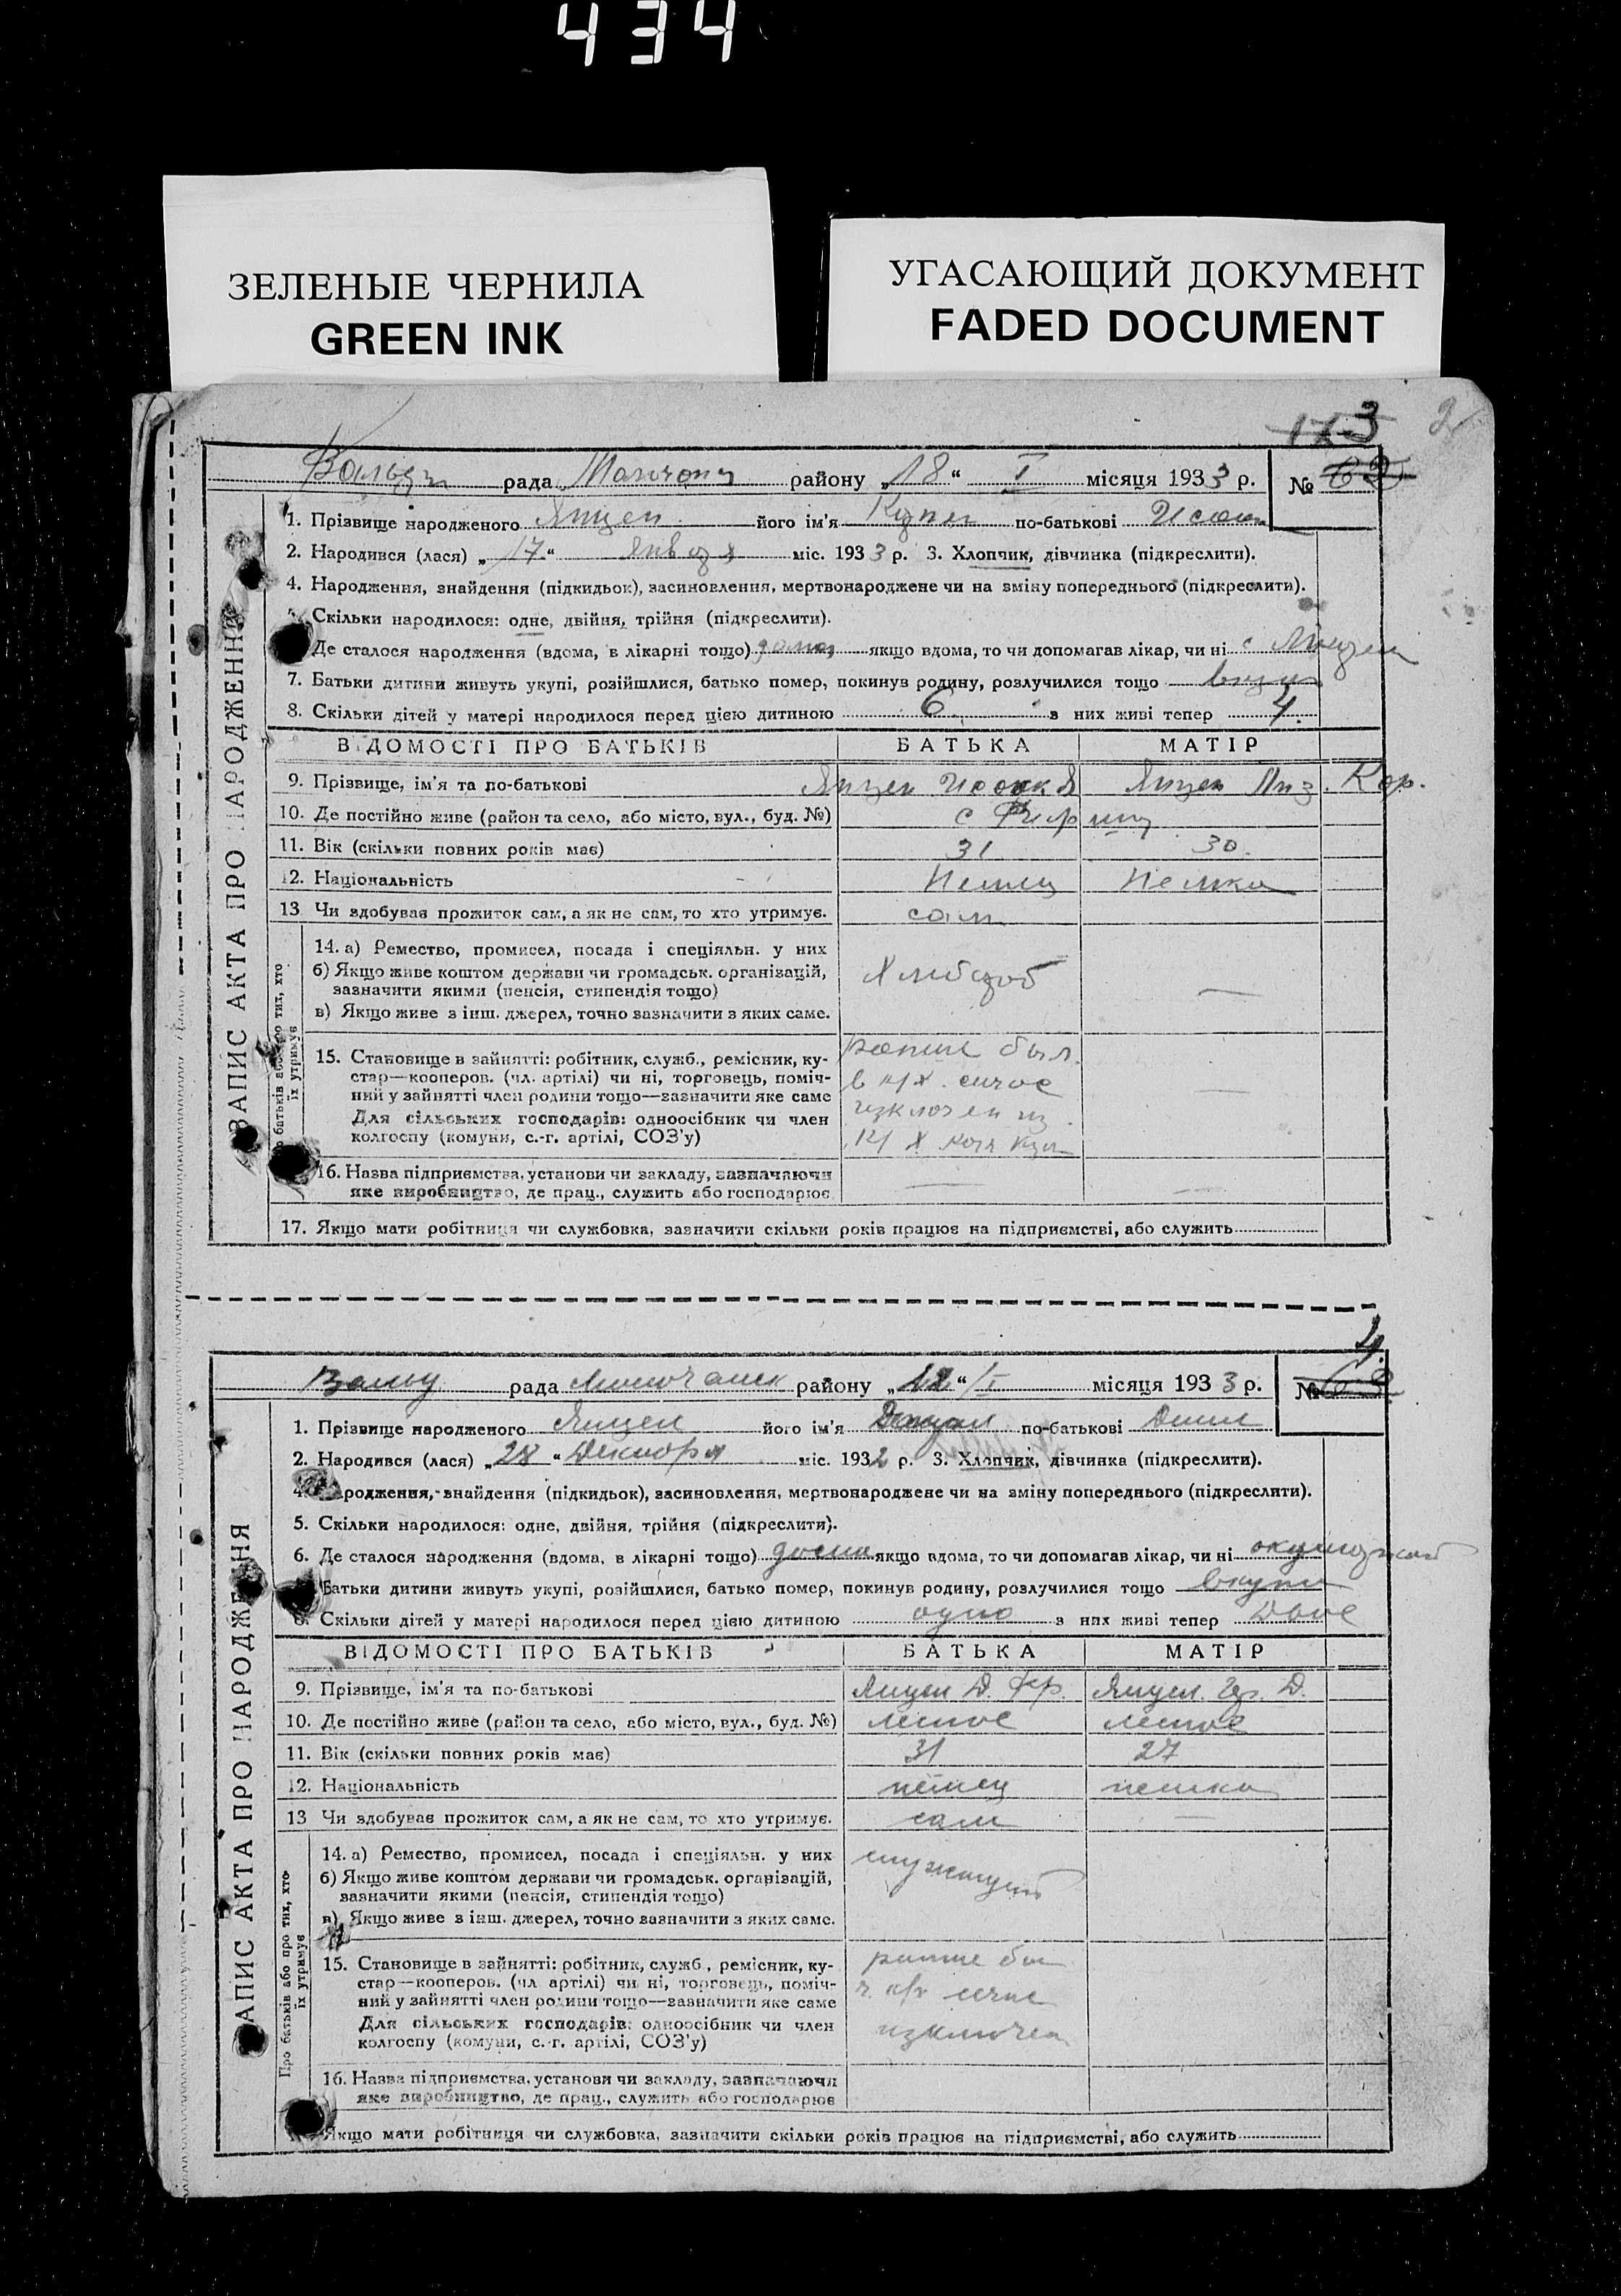 434
ЗЕЛЕНЫЕ ЧЕРНИЛА
GREEN INK
УГАСАЮЩИЙ ДОКУМЕНТ
FADED DOCUMENT
3
2
рада района „18“ I місяця 1933 р. №
ЗАПИС АКТА ПРО НАРОДЖЕННЯ
1. Прізвище народженого Янцен його ім'я по-батькові
2. Народився (лася) „17“ января міс. 1933 р. 3. Хлопчик, дівчинка (підкреслити).
4. Народження, знайдення (підкидьок), засиновлення, мертвонароджене чи на зміну попереднього (підкреслити).
Скільки народилося: одне, двійня, трійня (підкреслити).
Де сталося народження (вдома, в лікарні тощо) дома якщо вдома, то чи допомагав лікар, чи ні
7. Батьки дитини живуть укупі, розійшлися, батько помер, покинув родину, розлучилися тощо
8. Скільки дітей у матері народилося перед цією дитиною 6 з них живі тепер 4.
ВІДОМОСТІ ПРО БАТЬКІВ БАТЬКА МАТІР
9. Прізвище, ім'я та по-батькові Янцен Исаак Я Янцен Лиз. Кор.
10. Де постійно живе (район та село, або місто, вул., буд. №)
11. Вік (скільки повних років має) 31 30.
12. Національність Немец Немка
13. Чи здобуває прожиток сам, а як не сам, то хто утримує. сам
Про батьків або про тих, хто їх утримує
14. а) Ремество, промисел, посада і спеціяльн. у них
б) Якщо живе коштом держави чи громадськ. організацій,
зазначити якими (пенсія, стипендія тощо)
в) Якщо живе з інш. джерел, точно зазначити з яких саме.
Хлибороб —
15. Становище в зайнятті: робітник, служб., ремісник, ку-
стар—кооперов. (чл. артілі) чи ні, торговець, поміч-
ний у зайнятті член родини тощо—зазначити яке саме
Для сільських господарів: одноосібник чи член
колгоспу (комуни, с.-г. артілі, СОЗ'у)
ранше был
в к/х.
из
к/х —
16. Назва підприємства, установи чи закладу, зазначаючи
яке виробництво, де прац., служить або господарює — —
17. Якщо мати робітниця чи службовка, зазначити скільки років працює на підприємстві, або служить
4.
рада району „12“ I місяця 1933 р. №
ЗАПИС АКТА ПРО НАРОДЖЕННЯ
1. Прізвище народженого Янцен його ім'я по-батькові
2. Народився (лася) „28“ Декабря міс. 1932 р. 3. Хлопчик, дівчинка (підкреслити).
4. Народження, знайдення (підкидьок), засиновлення, мертвонароджене чи на зміну попереднього (підкреслити).
5. Скільки народилося: одне, двійня, трійня (підкреслити).
6. Де сталося народження (вдома, в лікарні тощо) дома якщо вдома, то чи допомагав лікар, чи ні
Батьки дитини живуть укупі, розійшлися, батько помер, покинув родину, розлучилися тощо вкупи
8. Скільки дітей у матері народилося перед цією дитиною одно з них живі тепер двое
ВІДОМОСТІ ПРО БАТЬКІВ БАТЬКА МАТІР
9. Прізвище, ім'я та по-батькові Янцен Д. Янцен Д.
10. Де постійно живе (район та село, або місто, вул., буд. №)
11. Вік (скільки повних років має) 31 27
12. Національність немец немка
13 Чи здобуває прожиток сам, а як не сам, то хто утримує. сам —
Про батьків або про тих, хто їх утримує
14. а) Ремество, промисел, посада і спеціяльн. у них
б) Якщо живе коштом держави чи громадськ. організацій,
зазначити якими (пенсія, стипендія тощо)
в) Якщо живе з інш. джерел, точно зазначити з яких саме.
служащий
15. Становище в зайнятті: робітник, служб., ремісник, ку-
стар—кооперов. (чл артілі) чи ні, торговець, поміч-
ний у зайнятті член родини тощо—зазначити яке саме
Для сільських господарів: одноосібник чи член
колгоспу (комуни, с.-г. артілі, СОЗ'у)
ранше
изключен
16. Назва підприємства, установи чи закладу, зазначаючи
яке виробництво, де прац., служить або господарює
Якщо мати робітниця чи службовка, зазначити скільки років працює на підприємстві, або служить